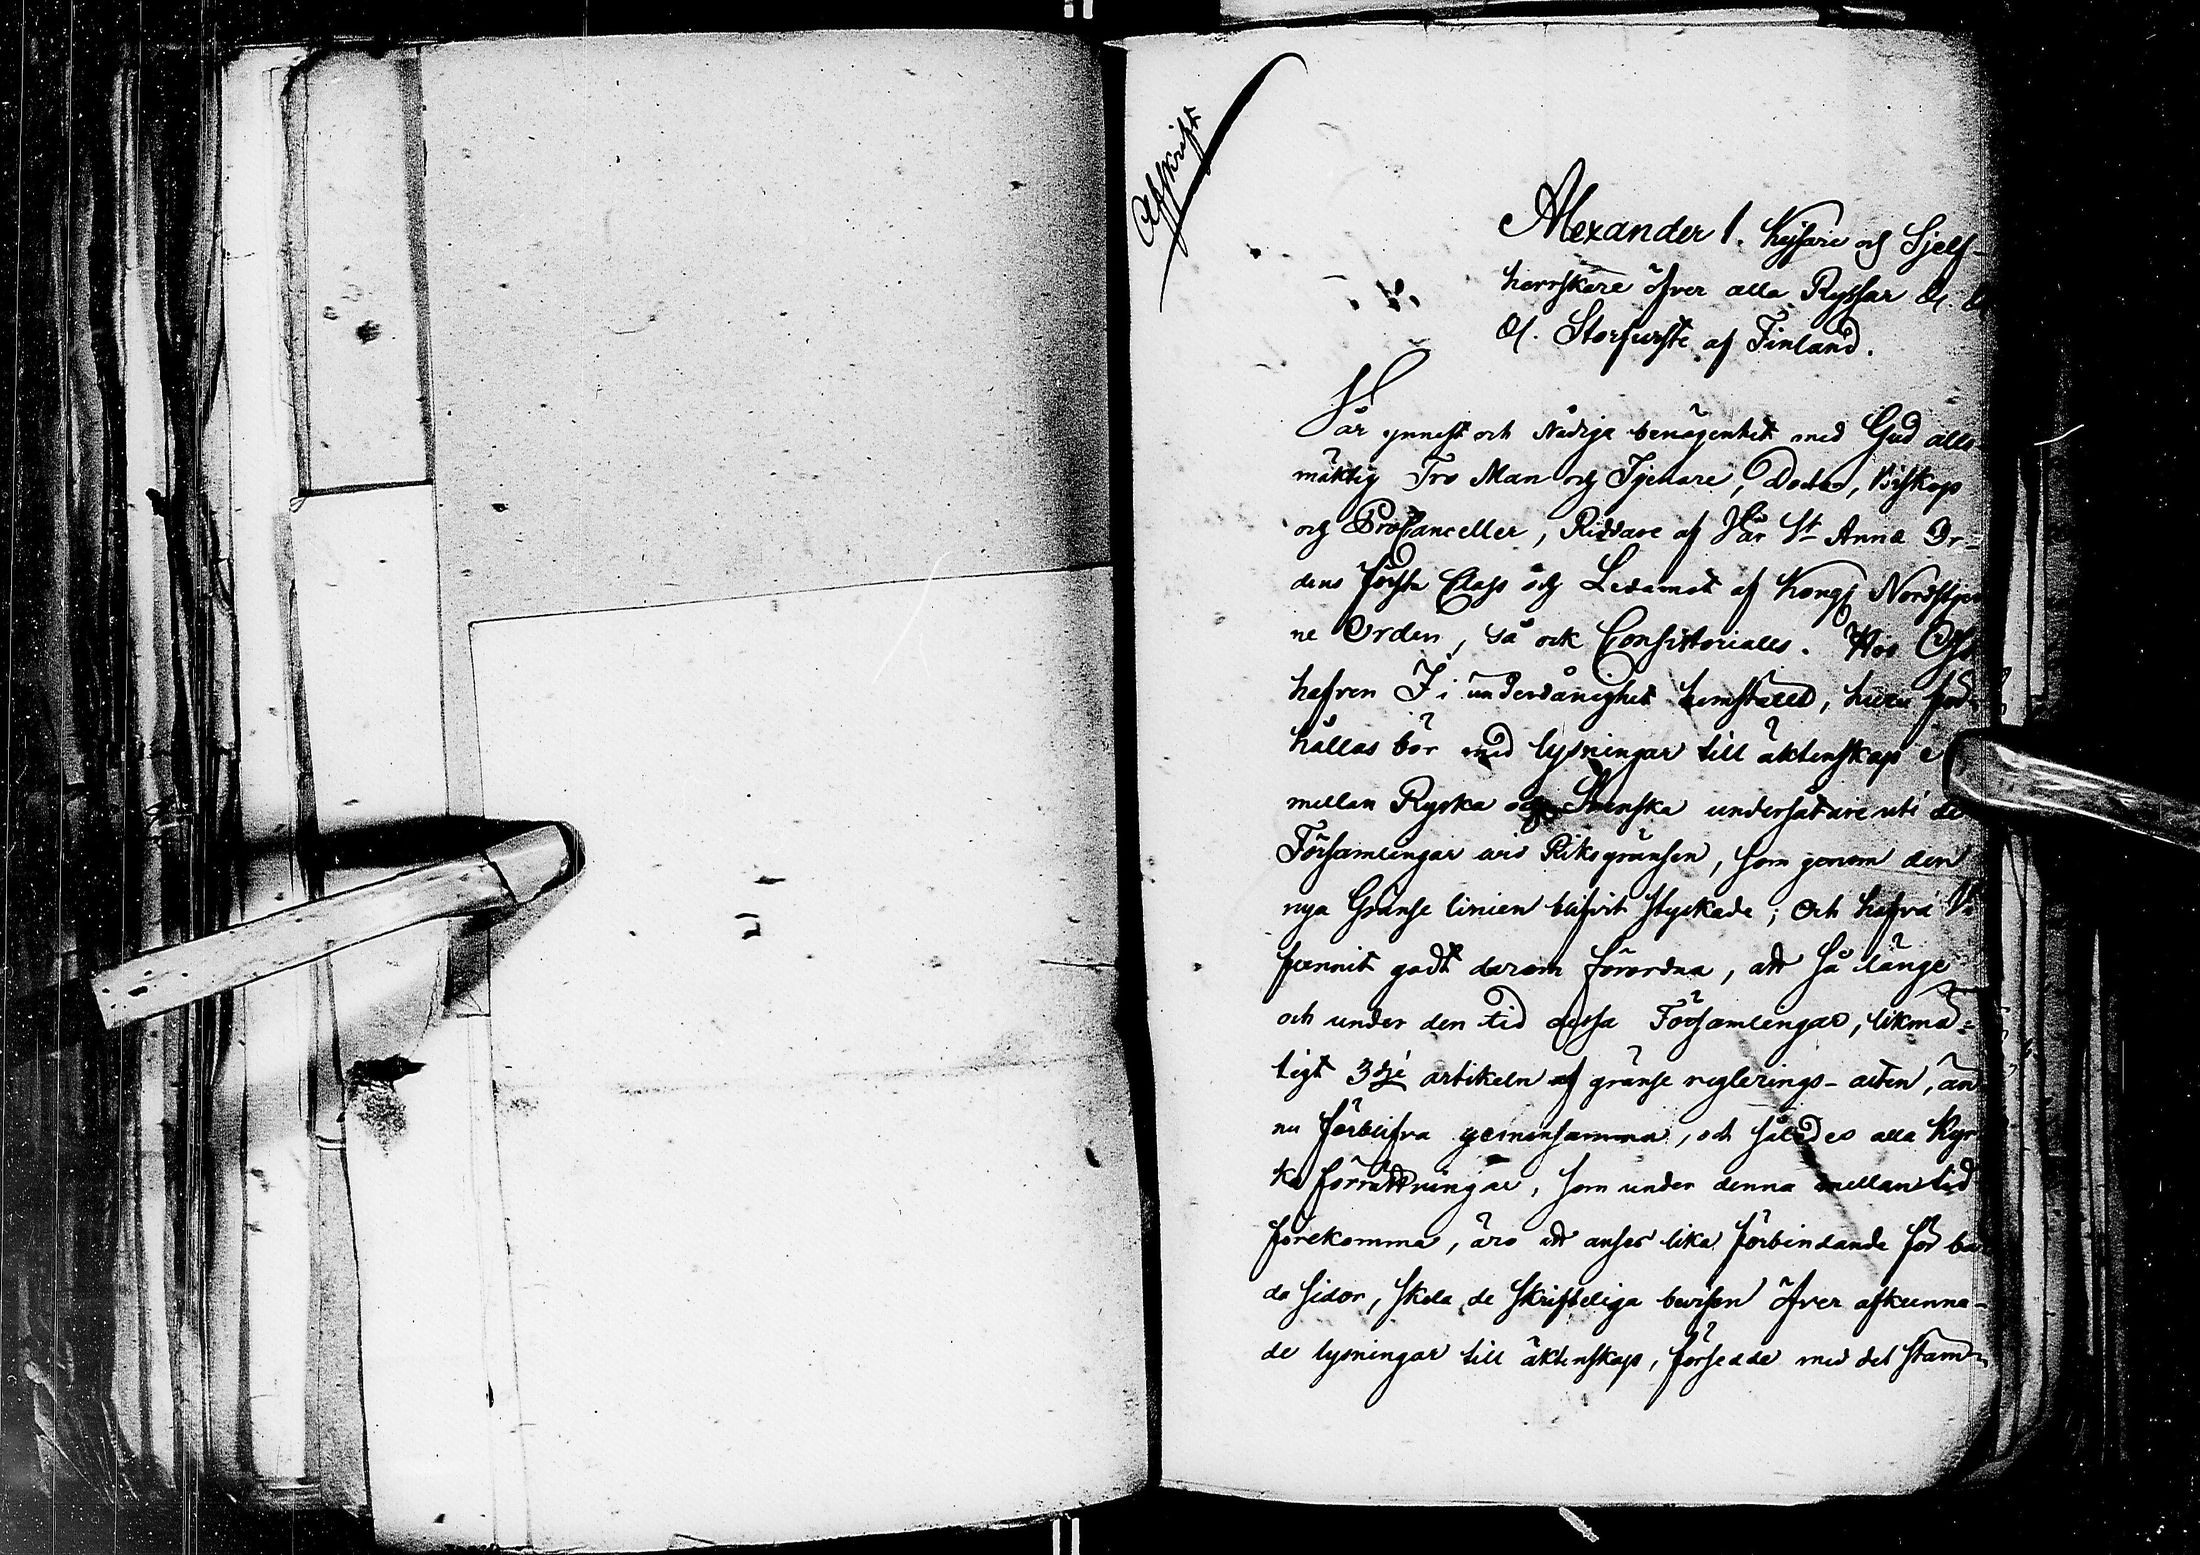 Afskrift
Alexander 1. Kejsare och Sjelf-
herrskare öfver alla Ryssar &.
&. Storfurste af Finland.
Vår ynnest och Nådiga benägenhet med Gud alls
mäktig Tro Man och Tjenare, Doctor, Biskop
och ProCanceller, Riddare af Vår St Annæ Or-
dens första Class och Ledamot af Kongl Nordstjer
ne Orden, så ock Consistoriales. Hos Oss
hafven I i underdånighet hemstäld, huru för-
hållas bör med lysningar till äktenskap e
mellan Ryska och Svenska undersåtare uti de
Församlingar wid Riksgränsen, som genom den
nya Gränse linien blifvit styckade; Och hafva Vi
funnit godt derom förordna, att så länge
och under den tid dessa Församlingar, likmä-
tigt 3dje artikeln af gränse reglerings-acten, än
nu förblifva gemensamma, och således alla Kyr
ko förrättningar, som under denna mellantid
förekomma, äro att anses lika förbindande för bå
da sidor, skola de skrifteliga bevisen öfver afkunna-
de lysningar till äktenskap, försedde med det stäm-